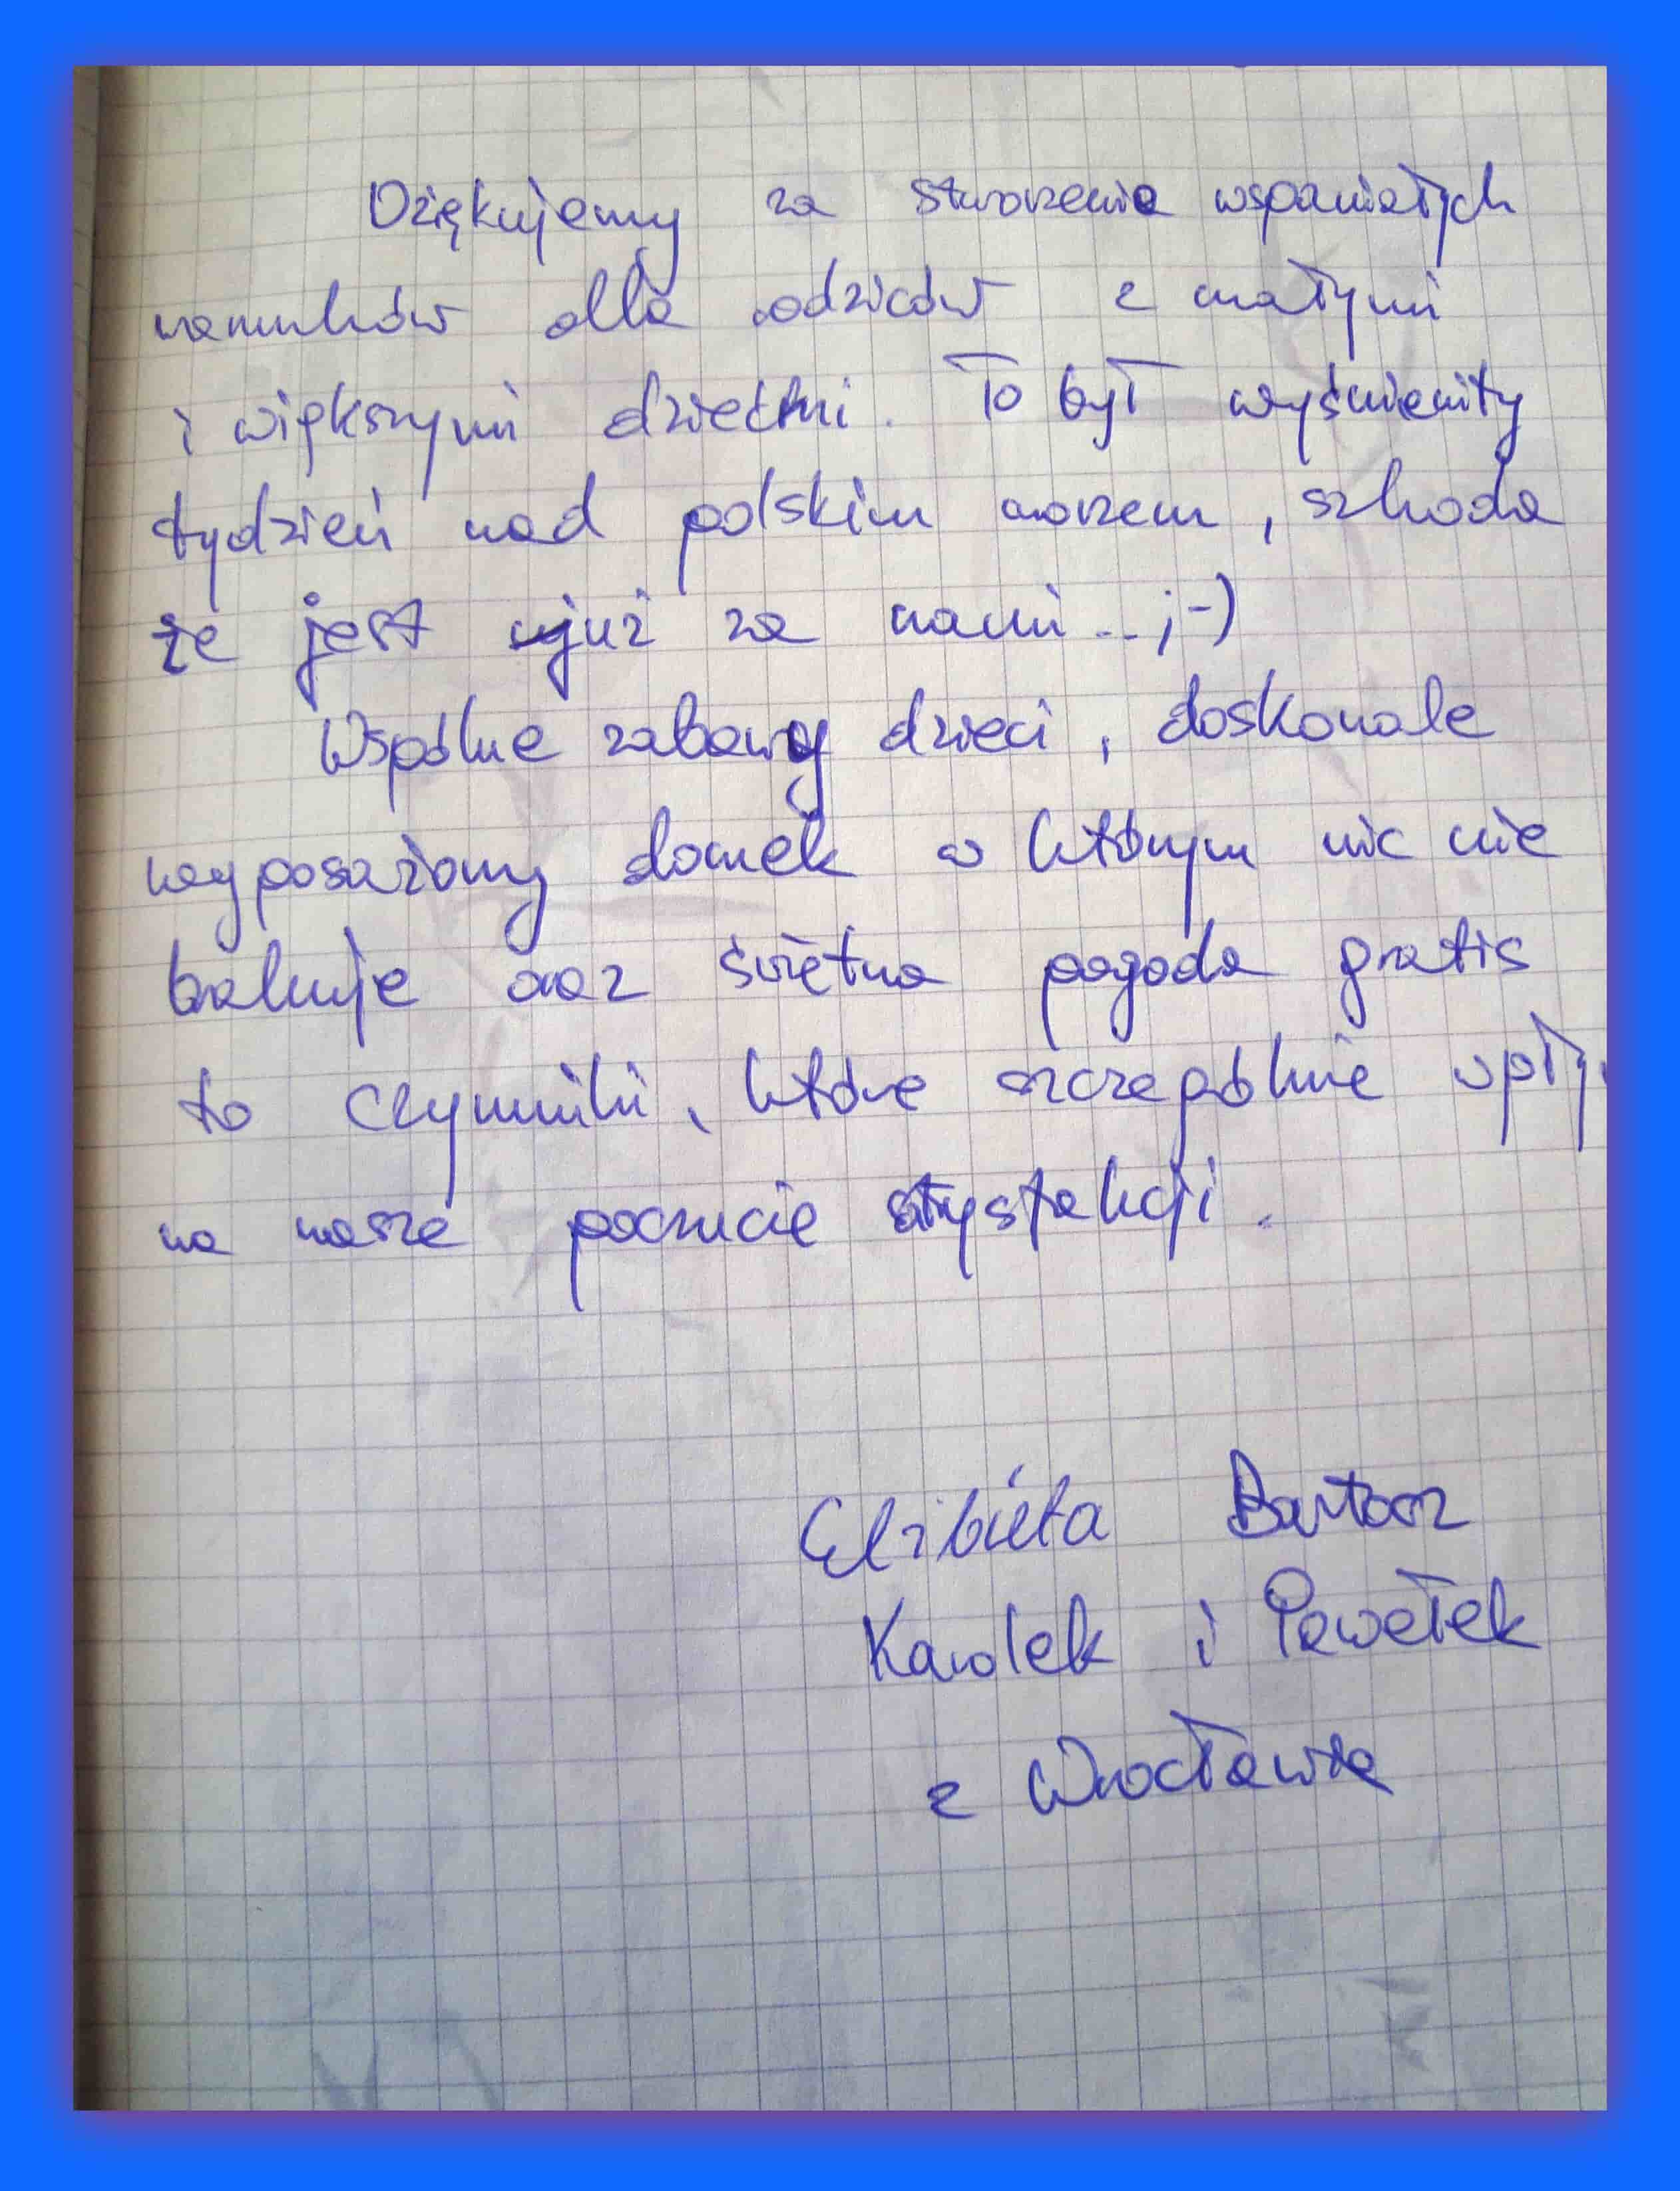 Dziękujemy za stworzenie wspaniałych
warunków dla rodziców z małymi
i większymi dziećmi. To był wyśmienity
tydzień nad polskim morzem, szkoda
że jest już za nami... ;-)
Wspólne zabawy dzieci, doskonale
wyposażony domek w którym nic nie
brakuje oraz świetna pogoda gratis
to czynniki, które szczególnie wpły
na nasze poczucie satysfakcji.
Elżbieta Bartosz
Karolek i Pawełek
z Wrocławia